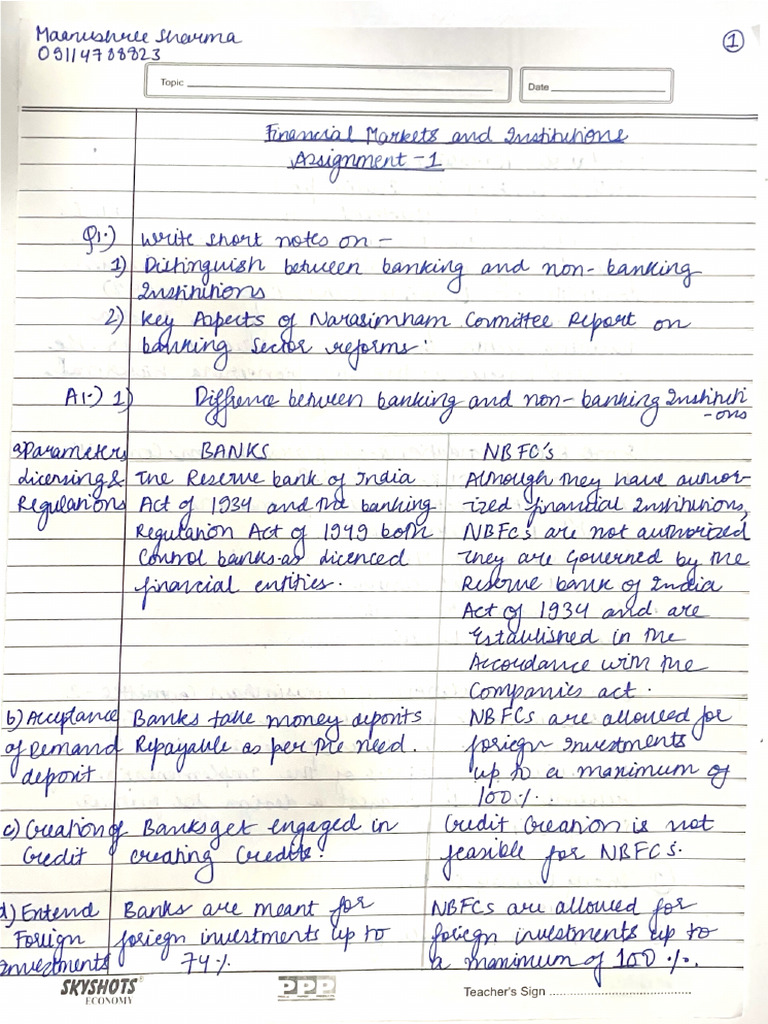 Maanushree Sharma
09114788823
1
Topic
Date
Financial Markets and Institutions
Assignment-1
Q1.) Write short notes on -
1) Distinguish between banking and non-banking
Institutions
2) Key Aspects of Narasimham Committee Report on
banking Sector reforms:
A1.) 1) Diffrence between banking and non-banking Instituti
-ons
a) Parameters
BANKS
NBFC's
Licensing &
Regulations
The Reserve bank of India
Act of 1934 and the banking
Regulation Act of 1949 both
Control banks as licenced
financial entities.
Although they have author-
ized financial Institutions,
NBFCs are not authorized
They are Governed by the
Reserve bank of India
Act of 1934 and are
Established in the
Accordance with the
Companies act.
b) Acceptance
of Demand
deposit
Banks take money deposits
Repayable as per the need.
NBFCs are allowed for
foriegn Investments
up to a maximum of
100%.
c) Creation of
Credit
Banks get engaged in
creating Credits.
Credit Creation is not
feasible for NBFCs.
d) Entend
Foriegn
Investments
Banks are meant for
foriegn investments up to
74%
NBFCs are allowed for
foriegn investments up to
a maximum of 100%.
SKYSHOTS
ECONOMY
PPP
Teacher's Sign